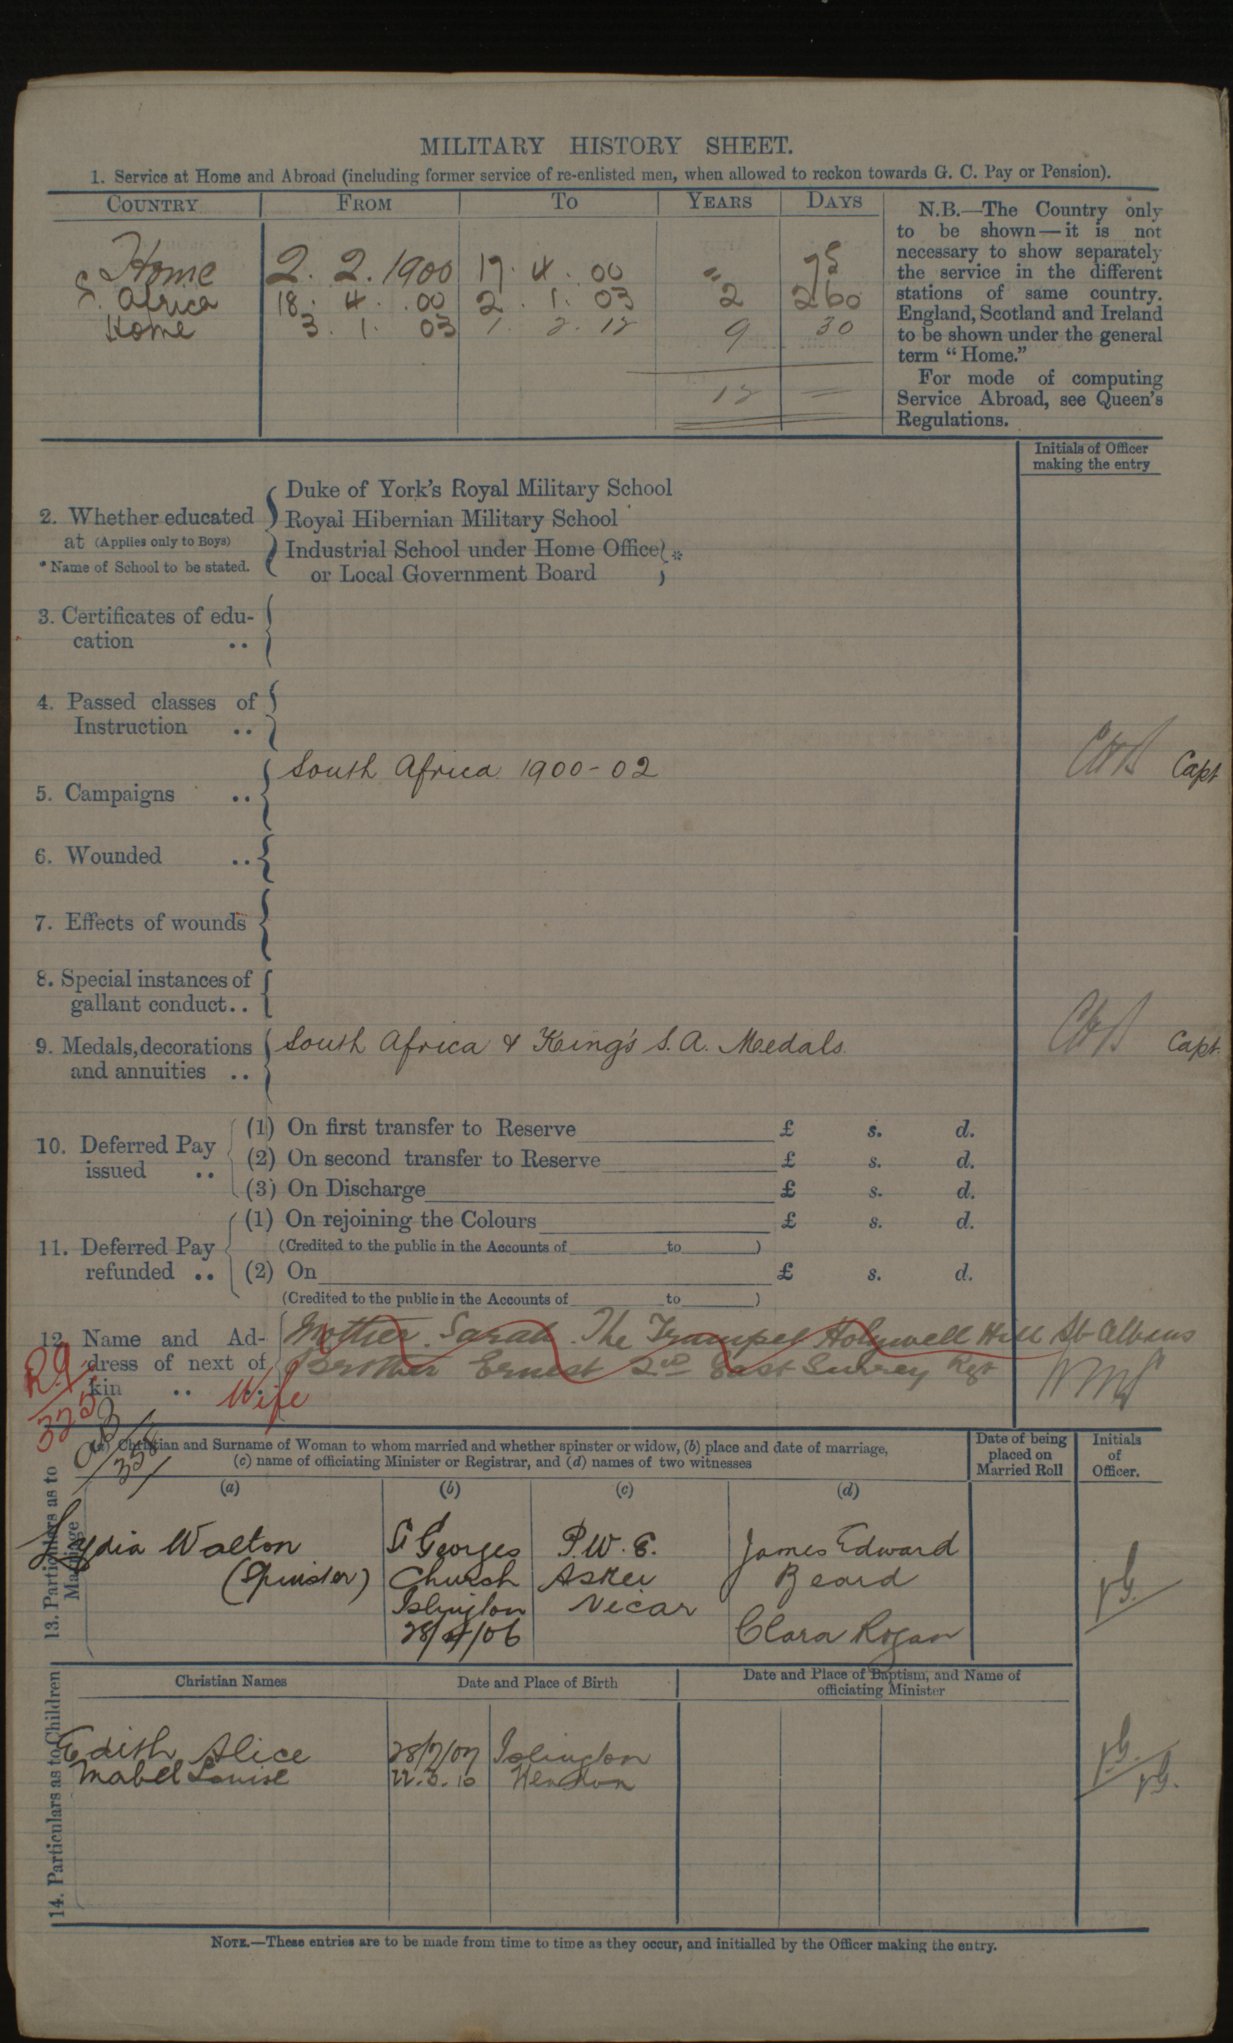 MILITARY HISTORY SHEET.
1. Service at Home and Abroad (including former service of re-enlisted men, when allowed to reckon towards G. C. Pay or Pension).
COUNTRY FROM TO YEARS DAYS
Home 2. 2. 1900 17. 4. 00 " 75
S. Africa 18. 4. 00 2. 1. 03 2 260
Home 3. 1. 03 1. 2. 12 9 30
12 —
N.B.—The Country only
to be shown—it is not
necessary to show separately
the service in the different
stations of same country.
England, Scotland and Ireland
to be shown under the general
term "Home."
For mode of computing
Service Abroad, see Queen's
Regulations.
Initials of Officer
making the entry
2. Whether educated
at (Applies only to Boys)
* Name of School to be stated.
Duke of York's Royal Military School
Royal Hibernian Military School
Industrial School under Home Office
or Local Government Board *
3. Certificates of edu-
cation ..
4. Passed classes of
Instruction ..
5. Campaigns ..
South Africa 1900-02
Capt
6. Wounded ..
7. Effects of wounds
8. Special instances of
gallant conduct..
9. Medals, decorations
and annuities ..
South Africa & King's S.A. Medals.
Capt.
10. Deferred Pay
issued ..
(1) On first transfer to Reserve £ s. d.
(2) On second transfer to Reserve £ s. d.
(3) On Discharge £ s. d.
11. Deferred Pay
refunded ..
(1) On rejoining the Colours £ s. d.
(Credited to the public in the Accounts of to )
(2) On £ s. d.
(Credited to the public in the Accounts of to )
12. Name and Ad-
dress of next of
kin .. ..
Mother. Sarah. The Trumpet Holywell Hill St Albans
Brother Ernest 2nd East Surrey Rgt
Wife
13. Particulars as to
Marriage
(a) Christian and Surname of Woman to whom married and whether spinster or widow, (b) place and date of marriage,
(c) name of officiating Minister or Registrar, and (d) names of two witnesses
Date of being
placed on
Married Roll
Initials
of
Officer.
(a) (b) (c) (d)
Lydia Walton St Georges P.W.E. James Edward
(Spinster) Church Asker Beard
Islington Vicar
28/4/06 Clara Rogan
14. Particulars as to Children
Christian Names Date and Place of Birth Date and Place of Baptism, and Name of
officiating Minister
Edith Alice 28/7/07 Islington
Mabel Louise 22.3.10 Hendon
NOTE.—These entries are to be made from time to time as they occur, and initialled by the Officer making the entry.